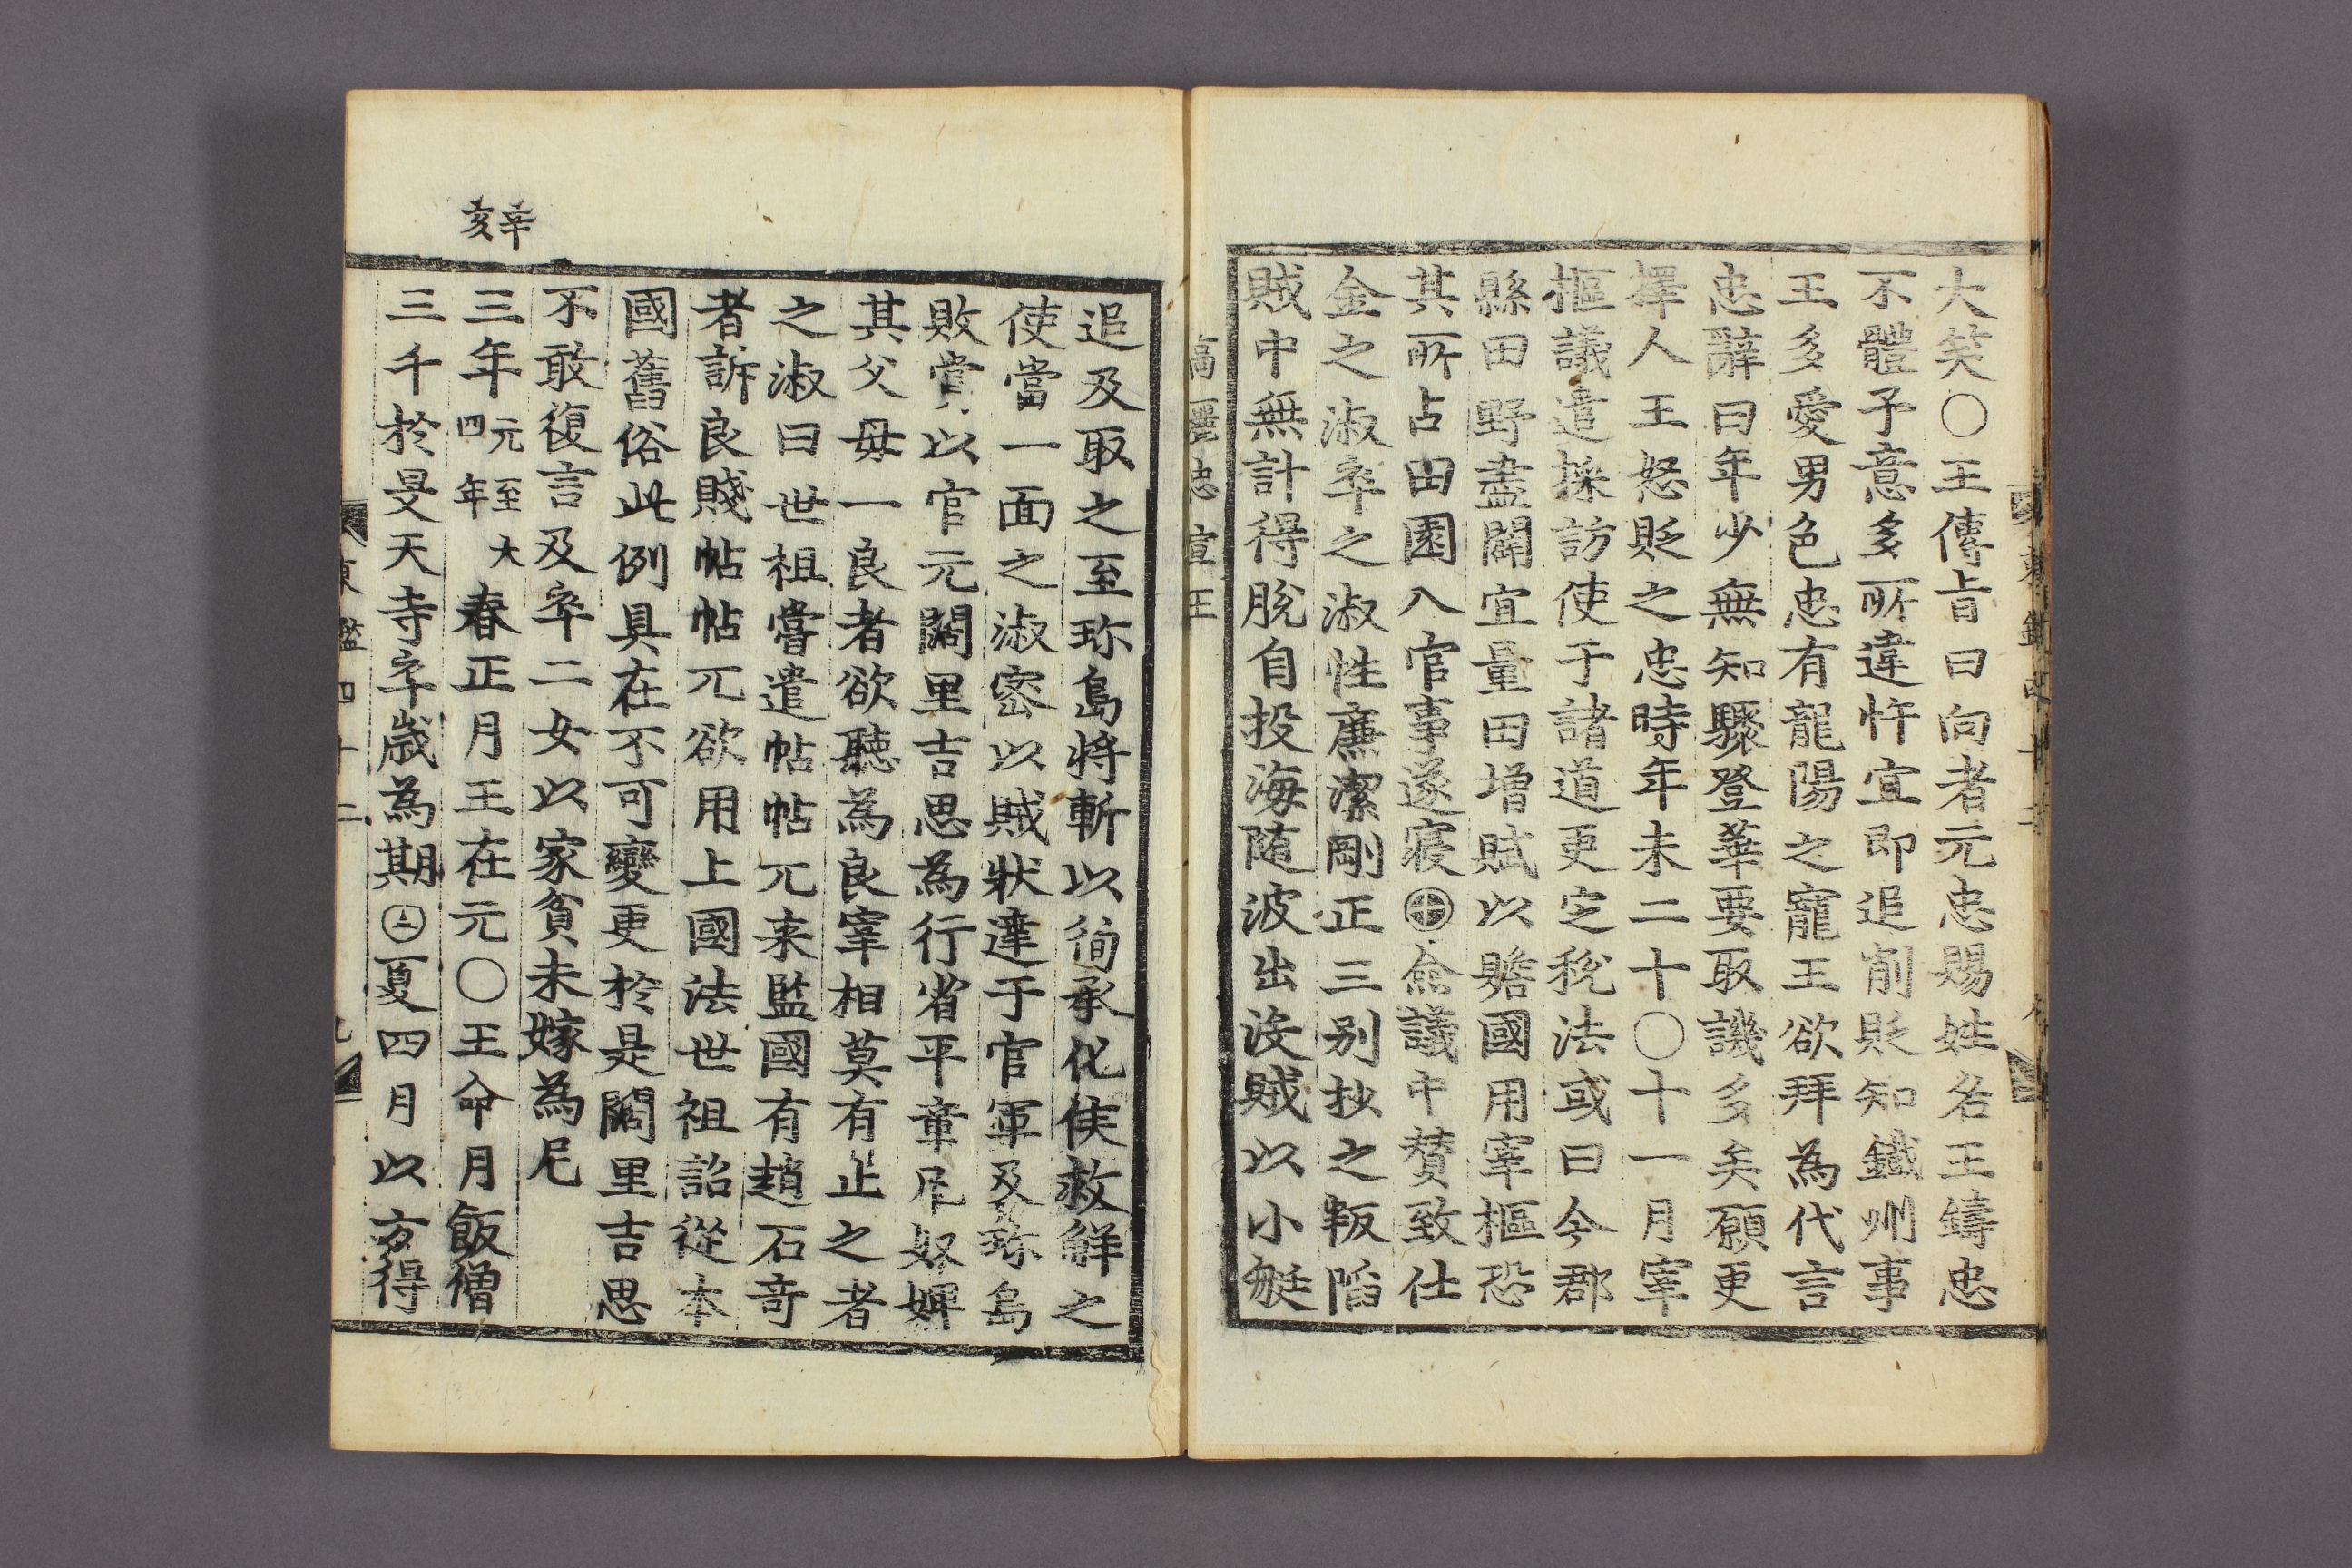 大笑○王傳旨曰向者元忠賜姓名王鑄忠
不體予意多所違忤宜即追削貶知鐵州事
王多愛男色忠有龍陽之寵王欲拜為代言
忠辭曰年少無知驟登華要取譏多矣願更
擇人王怒貶之忠時年未二十○十一月宰
樞議遣採訪使于諸道更定稅法或曰今郡
縣田野盡闢宜量田增賦以贍國用宰樞恐
其所占田園入官事遂寢㊉僉議中贊致仕
金之淑卒之淑性廉潔剛正三別抄之叛陷
賊中無計得脫自投海隨波出沒賊以小艇
高麗忠宣王
追及取之至珍島將斬以徇承化侯救觧之
使當一面之淑密以賊狀達于官軍及珍島
敗賞以官元闊里吉思為行省平章凡奴婢
其父母一良者欲聽為良宰相莫有止之者
之淑曰世祖嘗遣帖帖兀来監國有趙石奇
者訴良賤帖帖兀欲用上國法世祖詔從本
國舊俗此例具在不可變更於是闊里吉思
不敢復言及卒二女以家貧未嫁為尼
辛亥
三年元至大四年春正月王在元○王命月飯僧
三千於旻天寺卒歲為期㊂夏四月以方得
東鑑四十二
九